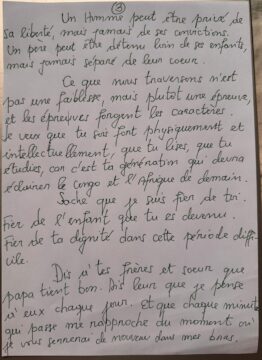 3
Un Homme peut être privé de
sa liberté, mais jamais de ses convictions.
Un père peut être détenu loin de ses enfants,
mais jamais séparé de leur coeur.
Ce que nous traversons n'est
pas une faiblesse, mais plutôt une épreuve,
et les épreuves forgent les caractères.
Je veux que tu sois fort physiquement et
intellectuellement, que tu lises, que tu
étudies, car c'est ta génération qui devra
éclairer le Congo et l'Afrique de demain.
Sache que je suis fier de toi.
Fier de l'enfant que tu es devenu.
Fier de ta dignité dans cette période diffi-
cile.
Dis à tes frères et soeur que
papa tient bon. Dis leur que je pense
à eux chaque jour. Et que chaque minute
qui passe me rapproche du moment où
je vous serrerai de nouveau dans mes bras.